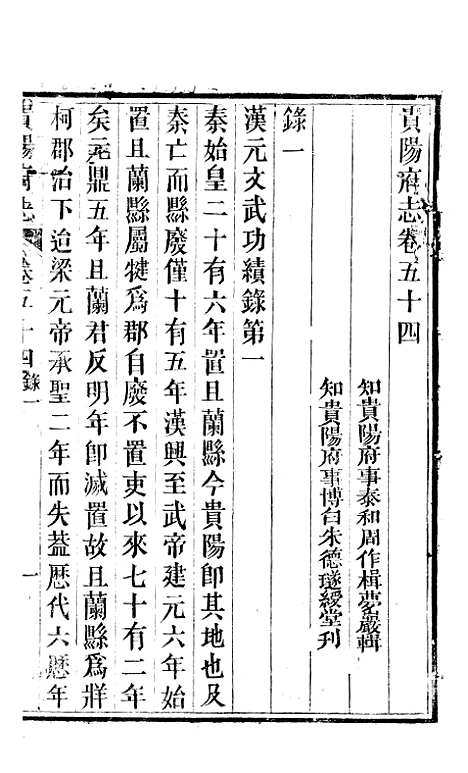 貴陽府志卷五十四
知貴陽府事泰和周作楫夢巖輯
知貴陽府事博白朱德璲綬堂刊
錄一
漢元文武功績錄第一
秦始皇二十有六年置且蘭縣今貴陽卽其地也及
秦亡而縣廢僅十有五年漢興至武帝建元六年始
置且蘭縣屬犍爲郡自廢不置吏以來七十有二年
矣元鼎五年且蘭君反明年卽滅置故且蘭縣爲牂
柯郡治下迨梁元帝承聖二年而失葢歷代六歷年
貴陽府志 卷五十四 錄一 一